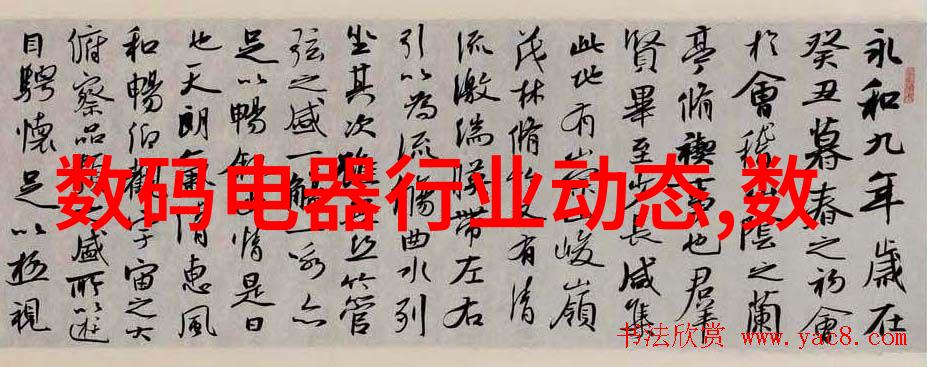 永和九年歲在
癸丑暮春之初會
於會稽山陰之蘭
亭脩禊事也羣
賢畢至少長咸集
此地有崇山峻嶺
茂林脩竹又有清
流激湍暎帶左右
引以為流觴曲水列
坐其次雖無絲竹管
弦之盛一觴一詠亦
足以暢敘幽情是日
也天朗氣清惠風
和暢仰觀宇宙之大
俯察品類之盛所以遊
目騁懷足以極視
数码电器行业动态,数
书法欣赏 www.yac8.com